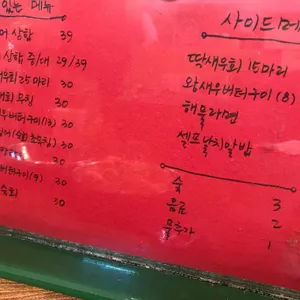 있는 메뉴
삼합 39
삼합 중/대 29/39
새우회 25마리 30
회 무침 30
버터구이(13) 30
30
30
버터구이(9) 30
숙회 30
사이드메
딱새우회 15마리
왕새우버터구이 (8)
해물라면
셀프날치알밥
술 3
음료 2
물추가 1